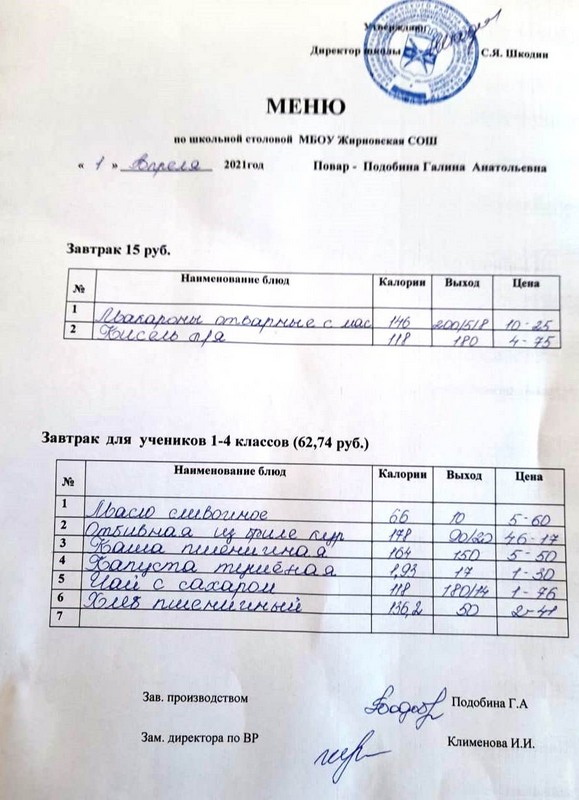 Утверждаю
Директор школы С.Я. Шкодин
МЕНЮ
по школьной столовой МБОУ Жирновская СОШ
« 1 » Апреля 2021год Повар - Подобина Галина Анатольевна
Завтрак 15 руб.
№ Наименование блюд Калории Выход Цена
1 Макароны отварные с мас 146 200/5/8 10-25
2 Кисель п/я 118 180 4-75
Завтрак для учеников 1-4 классов (62,74 руб.)
№ Наименование блюд Калории Выход Цена
1 Масло сливочное 66 10 5-60
2 Отбивная из филе кур 178 90/20 46-17
3 Каша пшеничная 164 150 5-50
4 Капуста тушёная 1,93 17 1-30
5 Чай с сахаром 118 180/14 1-76
6 Хлеб пшеничный 136,2 50 2-41
7
Зав. производством Подобина Г.А
Зам. директора по ВР Клименова И.И.